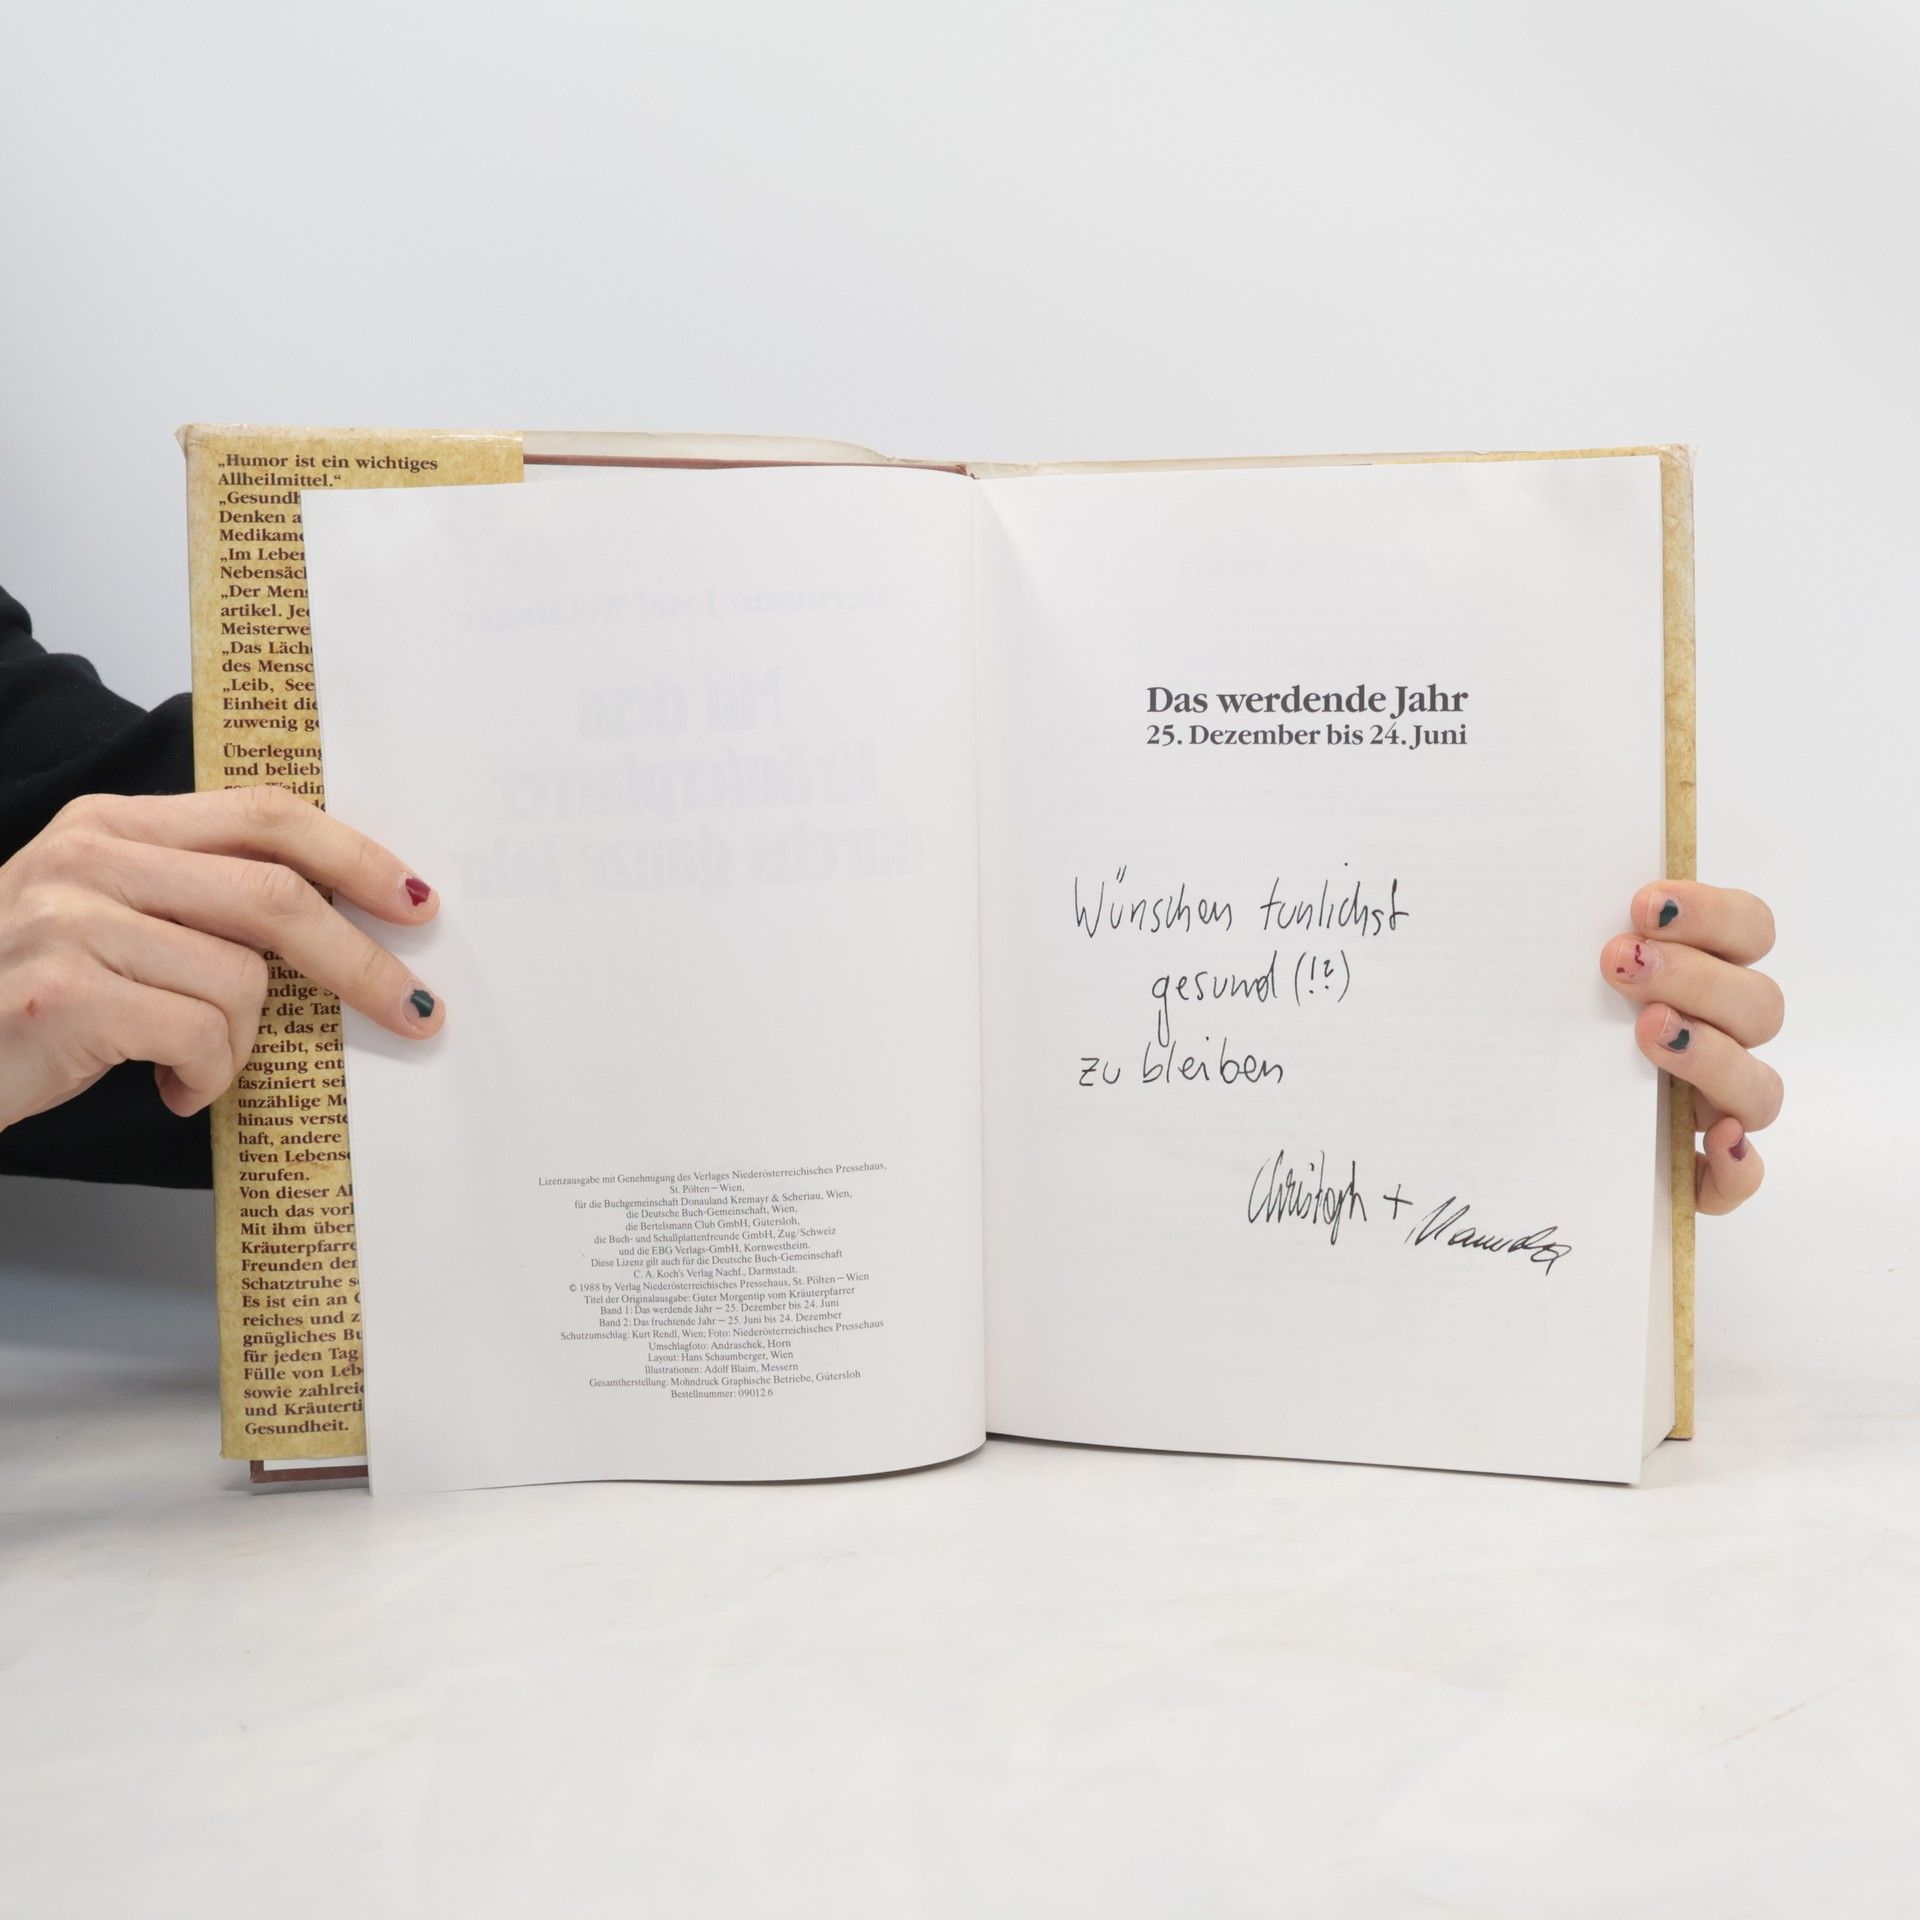 „Humor ist ein wichtiges
Allheilmittel.“
„Gesundh
Denken a
Medikame
„Im Leben
Nebensäch
„Der Mens
artikel. Jed
Meisterwe
„Das Läch
des Mensc
„Leib, See
Einheit die
zuwenig ge
Überlegung
und beliebt
Weidin
ndige
r die Tats
rt, das er
hreibt, sein
eugung ent
fasziniert sei
unzählige Me
hinaus verste
haft, andere
tiven Lebens
zurufen.
Von dieser Al
auch das vorl
Mit ihm über
Kräuterpfarre
Freunden der
Schatztruhe s
Es ist ein an
reiches und z
gnügliches Bu
für jeden Tag
Fülle von Leb
sowie zahlreic
und Kräuterti
Gesundheit.
Lizenzausgabe mit Genehmigung des Verlages Niederösterreichisches Pressehaus,
St. Pölten – Wien,
für die Buchgemeinschaft Donauland Kremayr & Scheriau, Wien,
die Deutsche Buch-Gemeinschaft, Wien,
die Bertelsmann Club GmbH, Gütersloh,
die Buch- und Schallplattenfreunde GmbH, Zug/Schweiz
und die EBG Verlags-GmbH, Kornwestheim.
Diese Lizenz gilt auch für die Deutsche Buch-Gemeinschaft
C. A. Koch's Verlag Nachf., Darmstadt.
© 1988 by Verlag Niederösterreichisches Pressehaus, St. Pölten – Wien
Titel der Originalausgabe: Guter Morgentip vom Kräuterpfarrer
Band 1: Das werdende Jahr – 25. Dezember bis 24. Juni
Band 2: Das fruchtende Jahr – 25. Juni bis 24. Dezember
Schutzumschlag: Kurt Rendl, Wien; Foto: Niederösterreichisches Pressehaus
Umschlagfoto: Andraschek, Horn
Layout: Hans Schaumberger, Wien
Illustrationen: Adolf Blaim, Messern
Gesamtherstellung: Mohndruck Graphische Betriebe, Gütersloh
Bestellnummer: 09012 6
Das werdende Jahr
25. Dezember bis 24. Juni
Wünschen tunlichst
gesund (!?)
zu bleiben
Christoph +